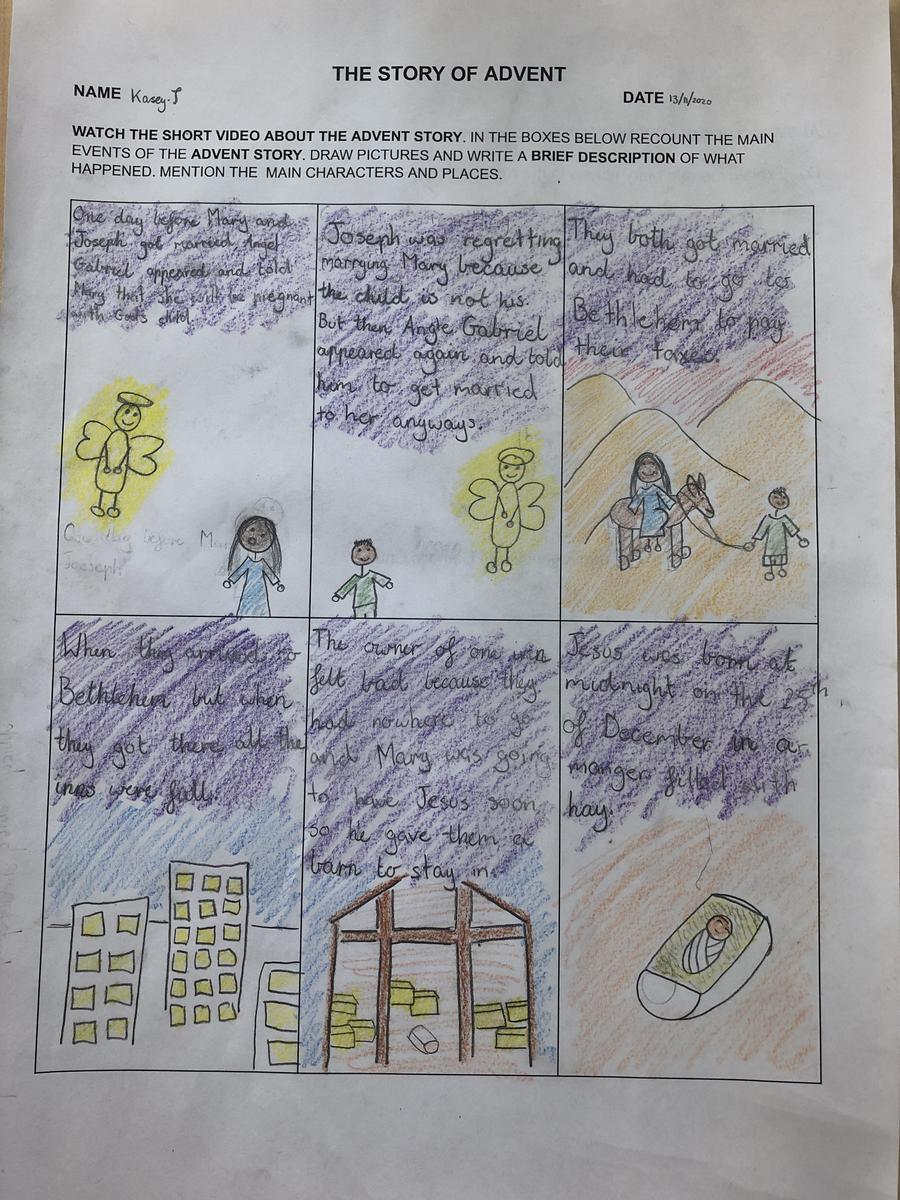 THE STORY OF ADVENT
NAME Kasey.J
DATE 13/11/2020
WATCH THE SHORT VIDEO ABOUT THE ADVENT STORY. IN THE BOXES BELOW RECOUNT THE MAIN
EVENTS OF THE ADVENT STORY. DRAW PICTURES AND WRITE A BRIEF DESCRIPTION OF WHAT
HAPPENED. MENTION THE MAIN CHARACTERS AND PLACES.
One day before Mary and
Joseph got married Angel
Gabriel appeared and told
Mary that she will be pregnant
with Gods child.
One day before Mar
Joeseph
Joseph was regretting
marrying Mary because
the child is not his.
But then Angle Gabriel
appeared again and told
him to get married
to her anyways.
They both got married
and had to go to
Bethlehem to pay
their taxes.
When they arrived to
Bethlehem but when
they got there all the
inns were full.
The owner of one inn
felt bad because they
had nowhere to go
and Mary was going
to have Jesus soon
so he gave them a
barn to stay in.
Jesus was born at
midnight on the 25th
of December in a
manger filled with
hay.